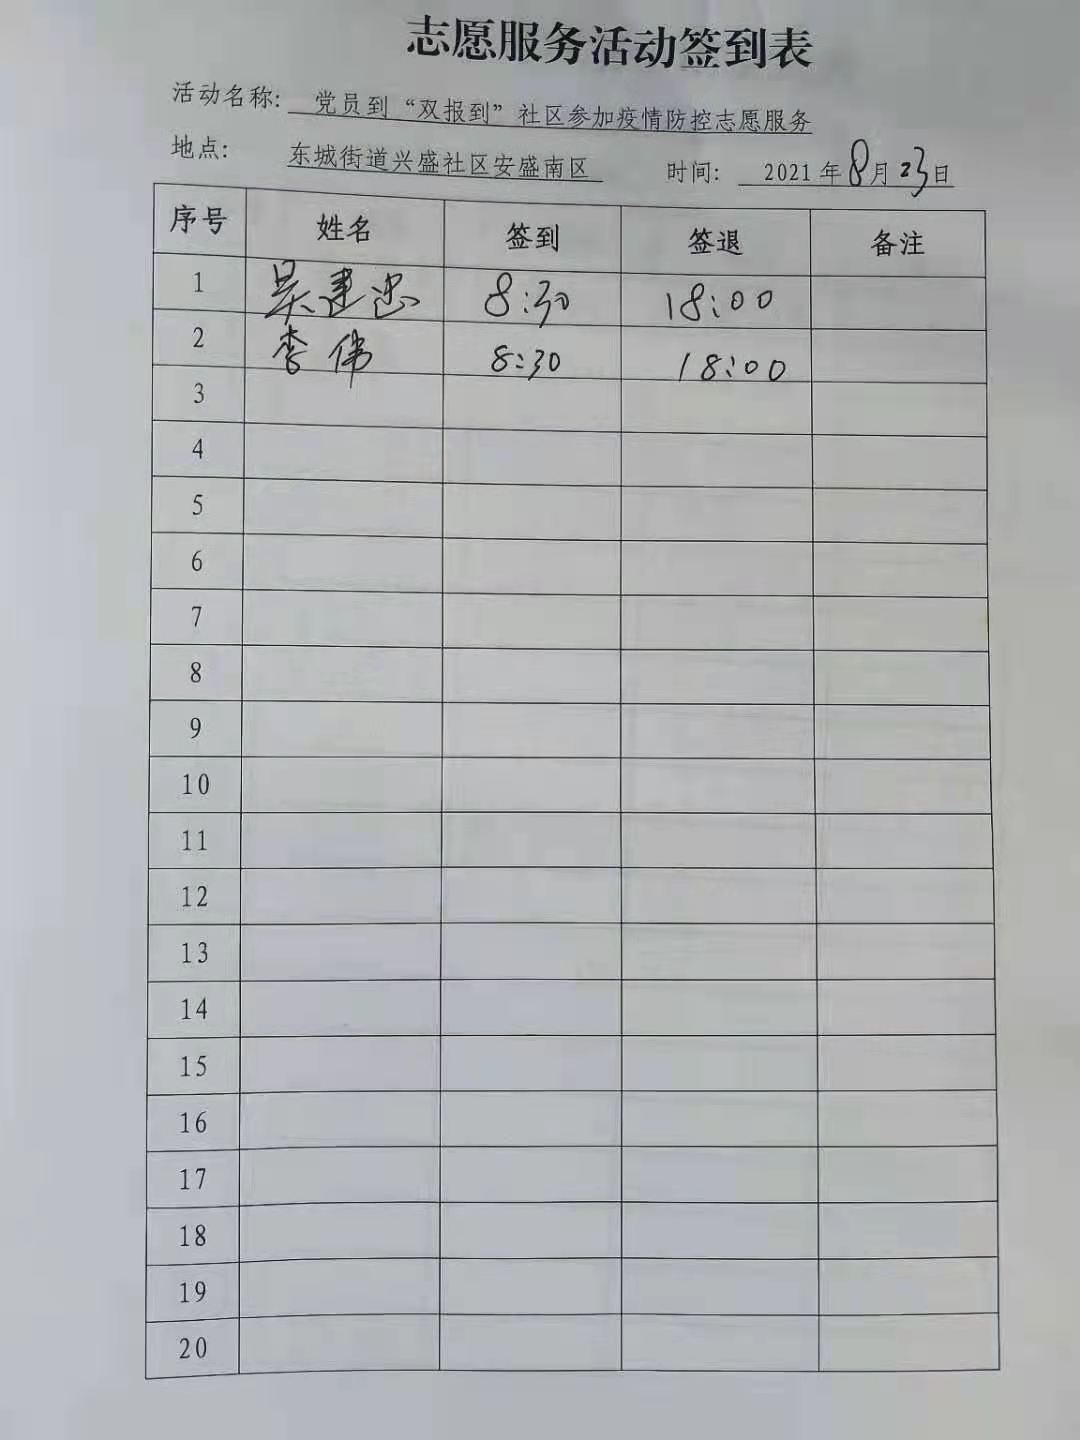 志愿服务活动签到表
活动名称: 党员到“双报到”社区参加疫情防控志愿服务
地点: 东城街道兴盛社区安盛南区 时间: 2021年8月23日
序号 姓名 签到 签退 备注
1 吴建忠 8:30 18:00
2 李伟 8:30 18:00
3
4
5
6
7
8
9
10
11
12
13
14
15
16
17
18
19
20